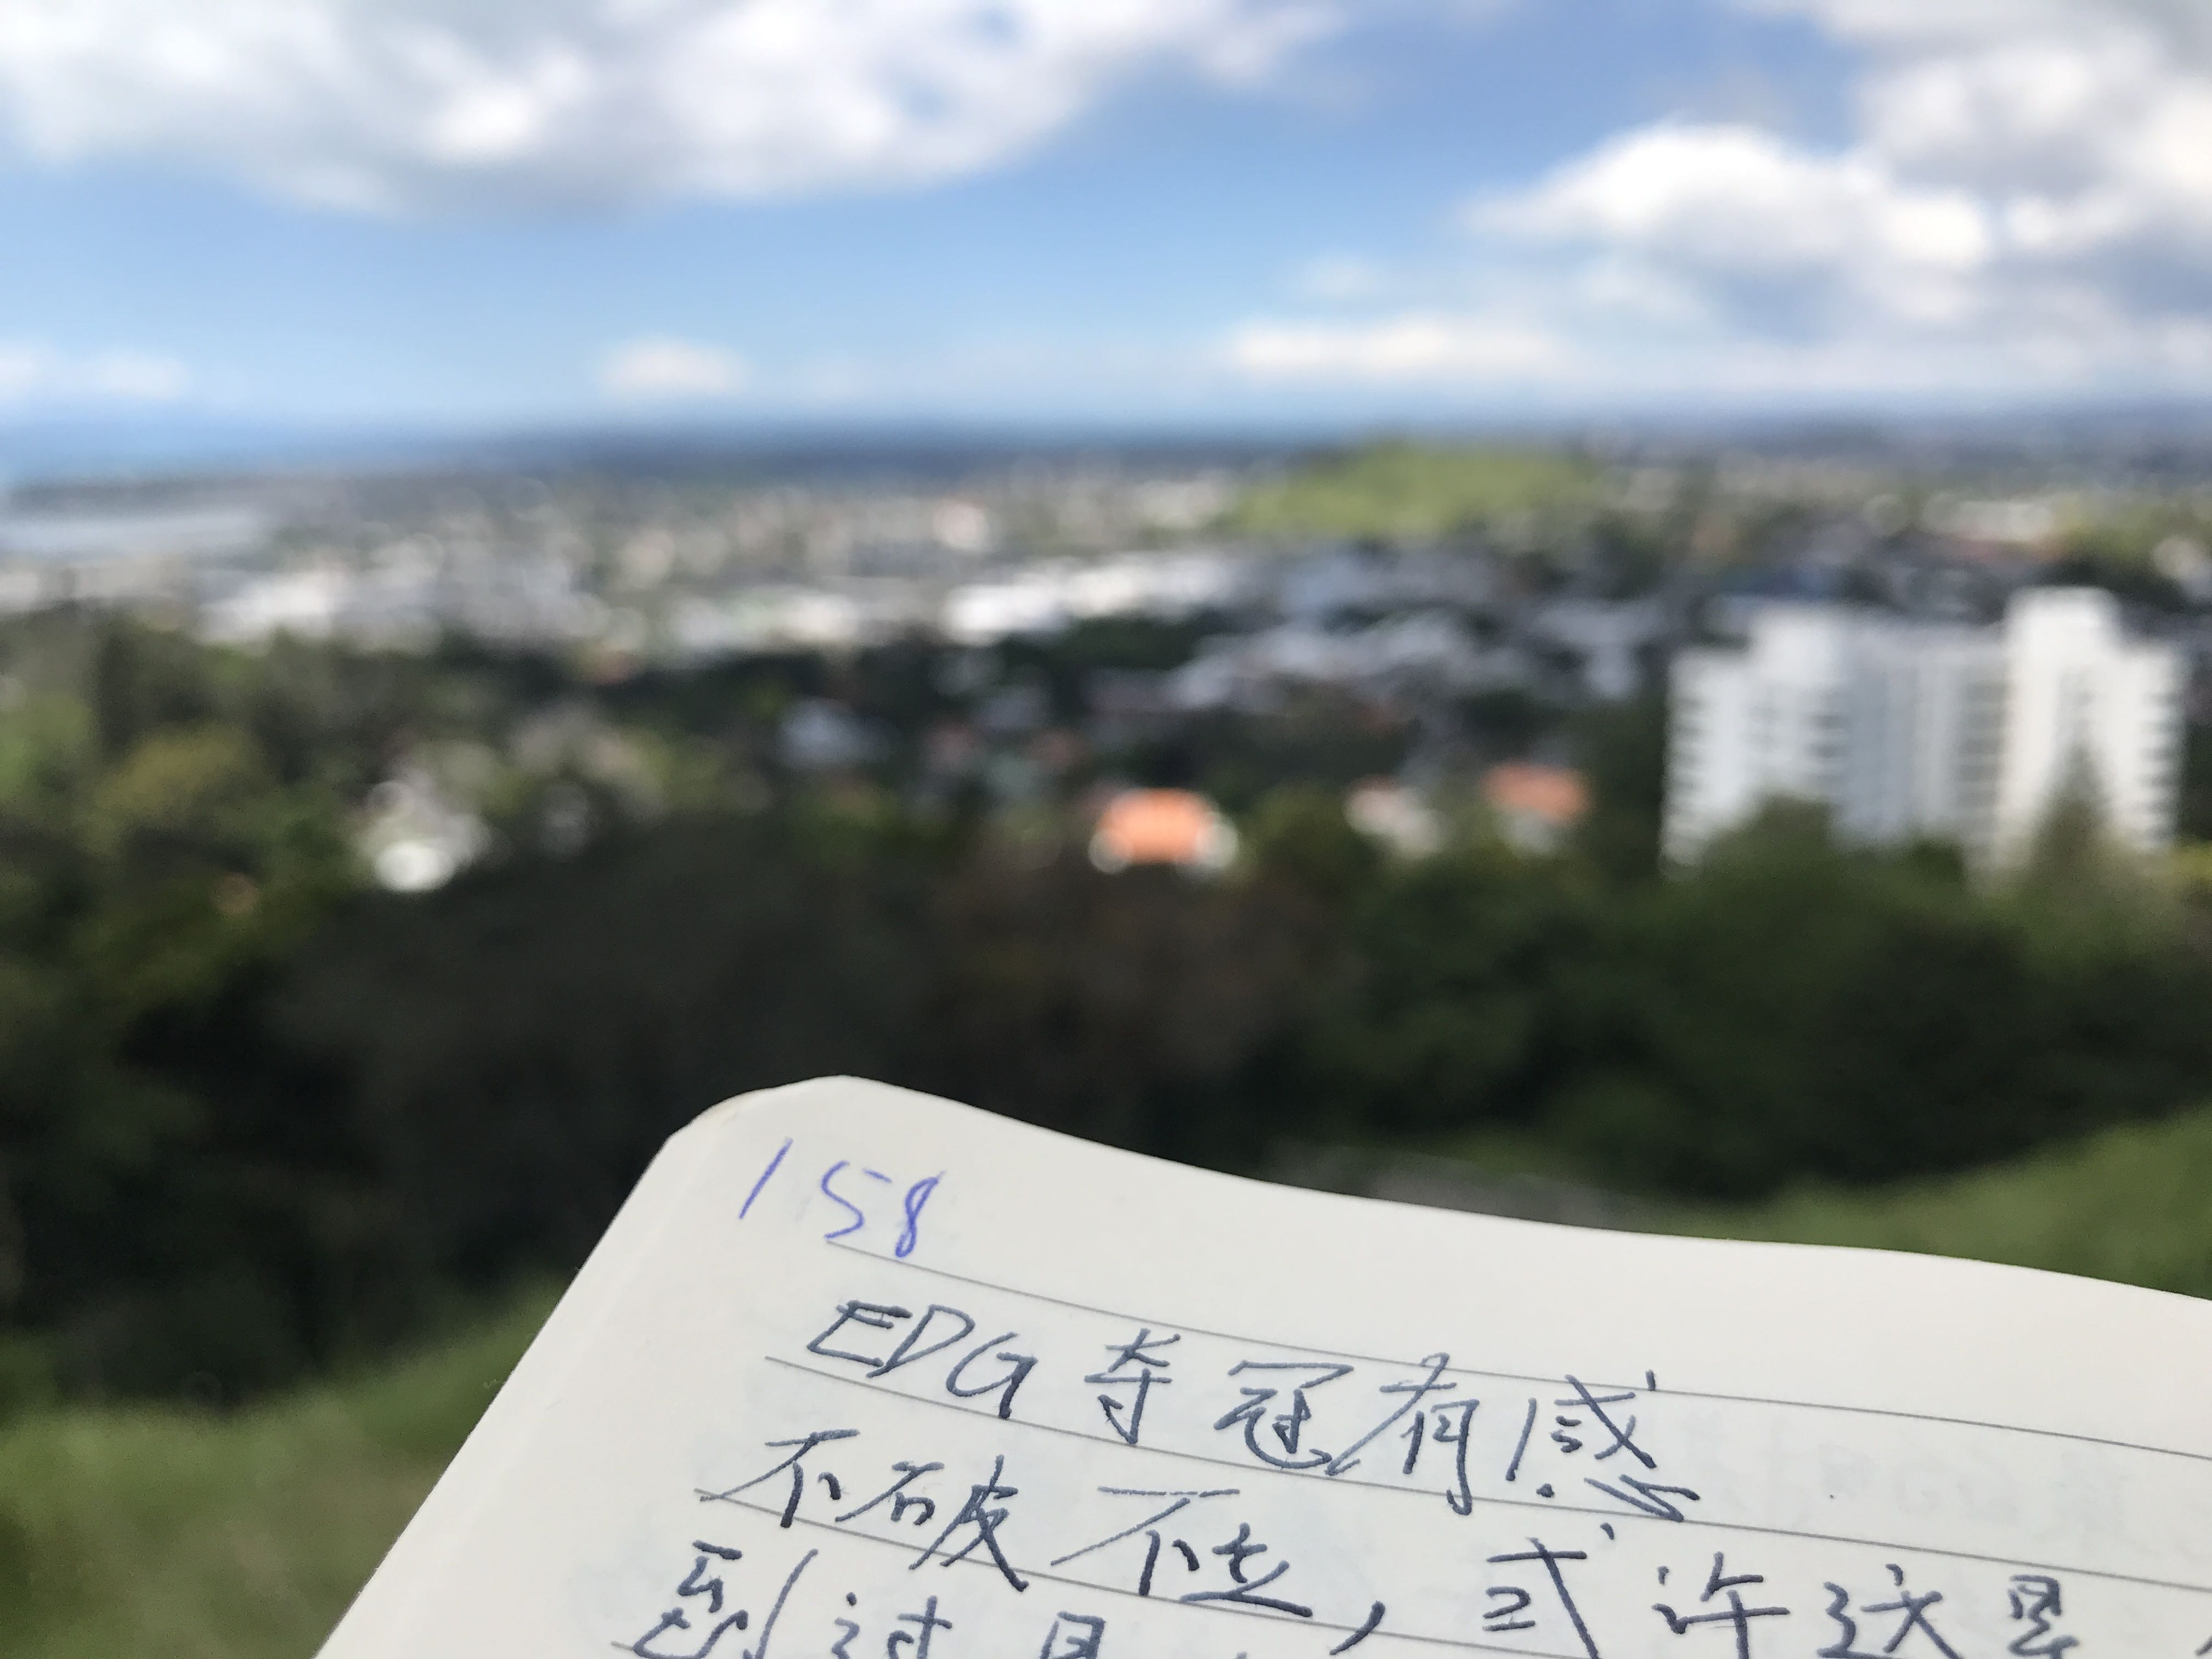 158
EDG夺冠有感
不破不立，或许这是
到过